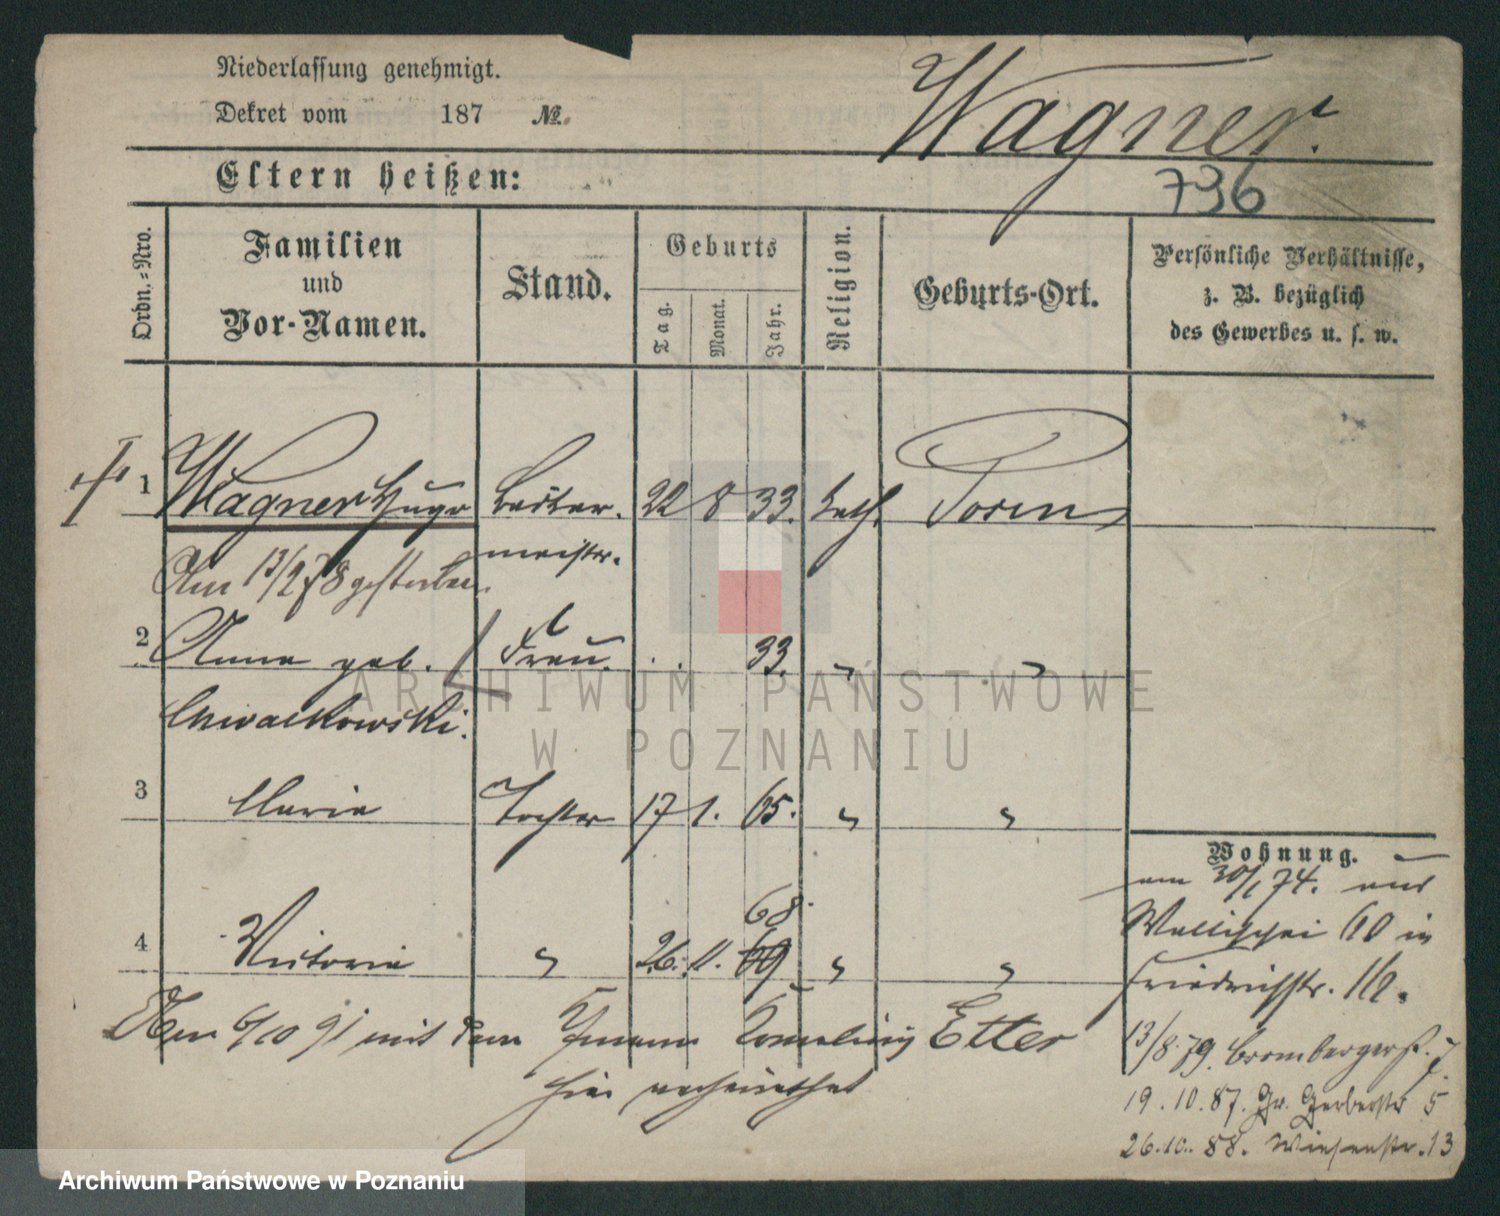 Niederlassung genehmigt.
Dekret vom 187 №.
Wagner.
Eltern heißen:
736
Ordn.-Nro.
Familien
und
Vor-Namen.
Stand.
Geburts
Tag.
Monat.
Jahr.
Religion.
Geburts-Ort.
Persönliche Verhältnisse,
z. B. bezüglich
des Gewerbes u. s. w.
1 Wagner Hugo 22 8 33. kath. Posen
meister.
Am 13/2 78 gestorben
2 Anna geb. Frau. . . 33. " "
Chwalkowski.
3 Maria Tochter 17 1. 65. " "
Wohnung.
am 30/1 74. aus
Wallischei 60 in
Friedrichstr.
68.
4 Victoria " 26. 11. 69 " "
Am 6/10 91 mit dem Etter
hier verheirathet
13/8.79. Brombergerst. 7
19.10.87. Gr. Gerberstr 5
26.10.88. Wiesenstr. 13
ARCHIWUM PAŃSTWOWE
W POZNANIU
Archiwum Państwowe w Poznaniu